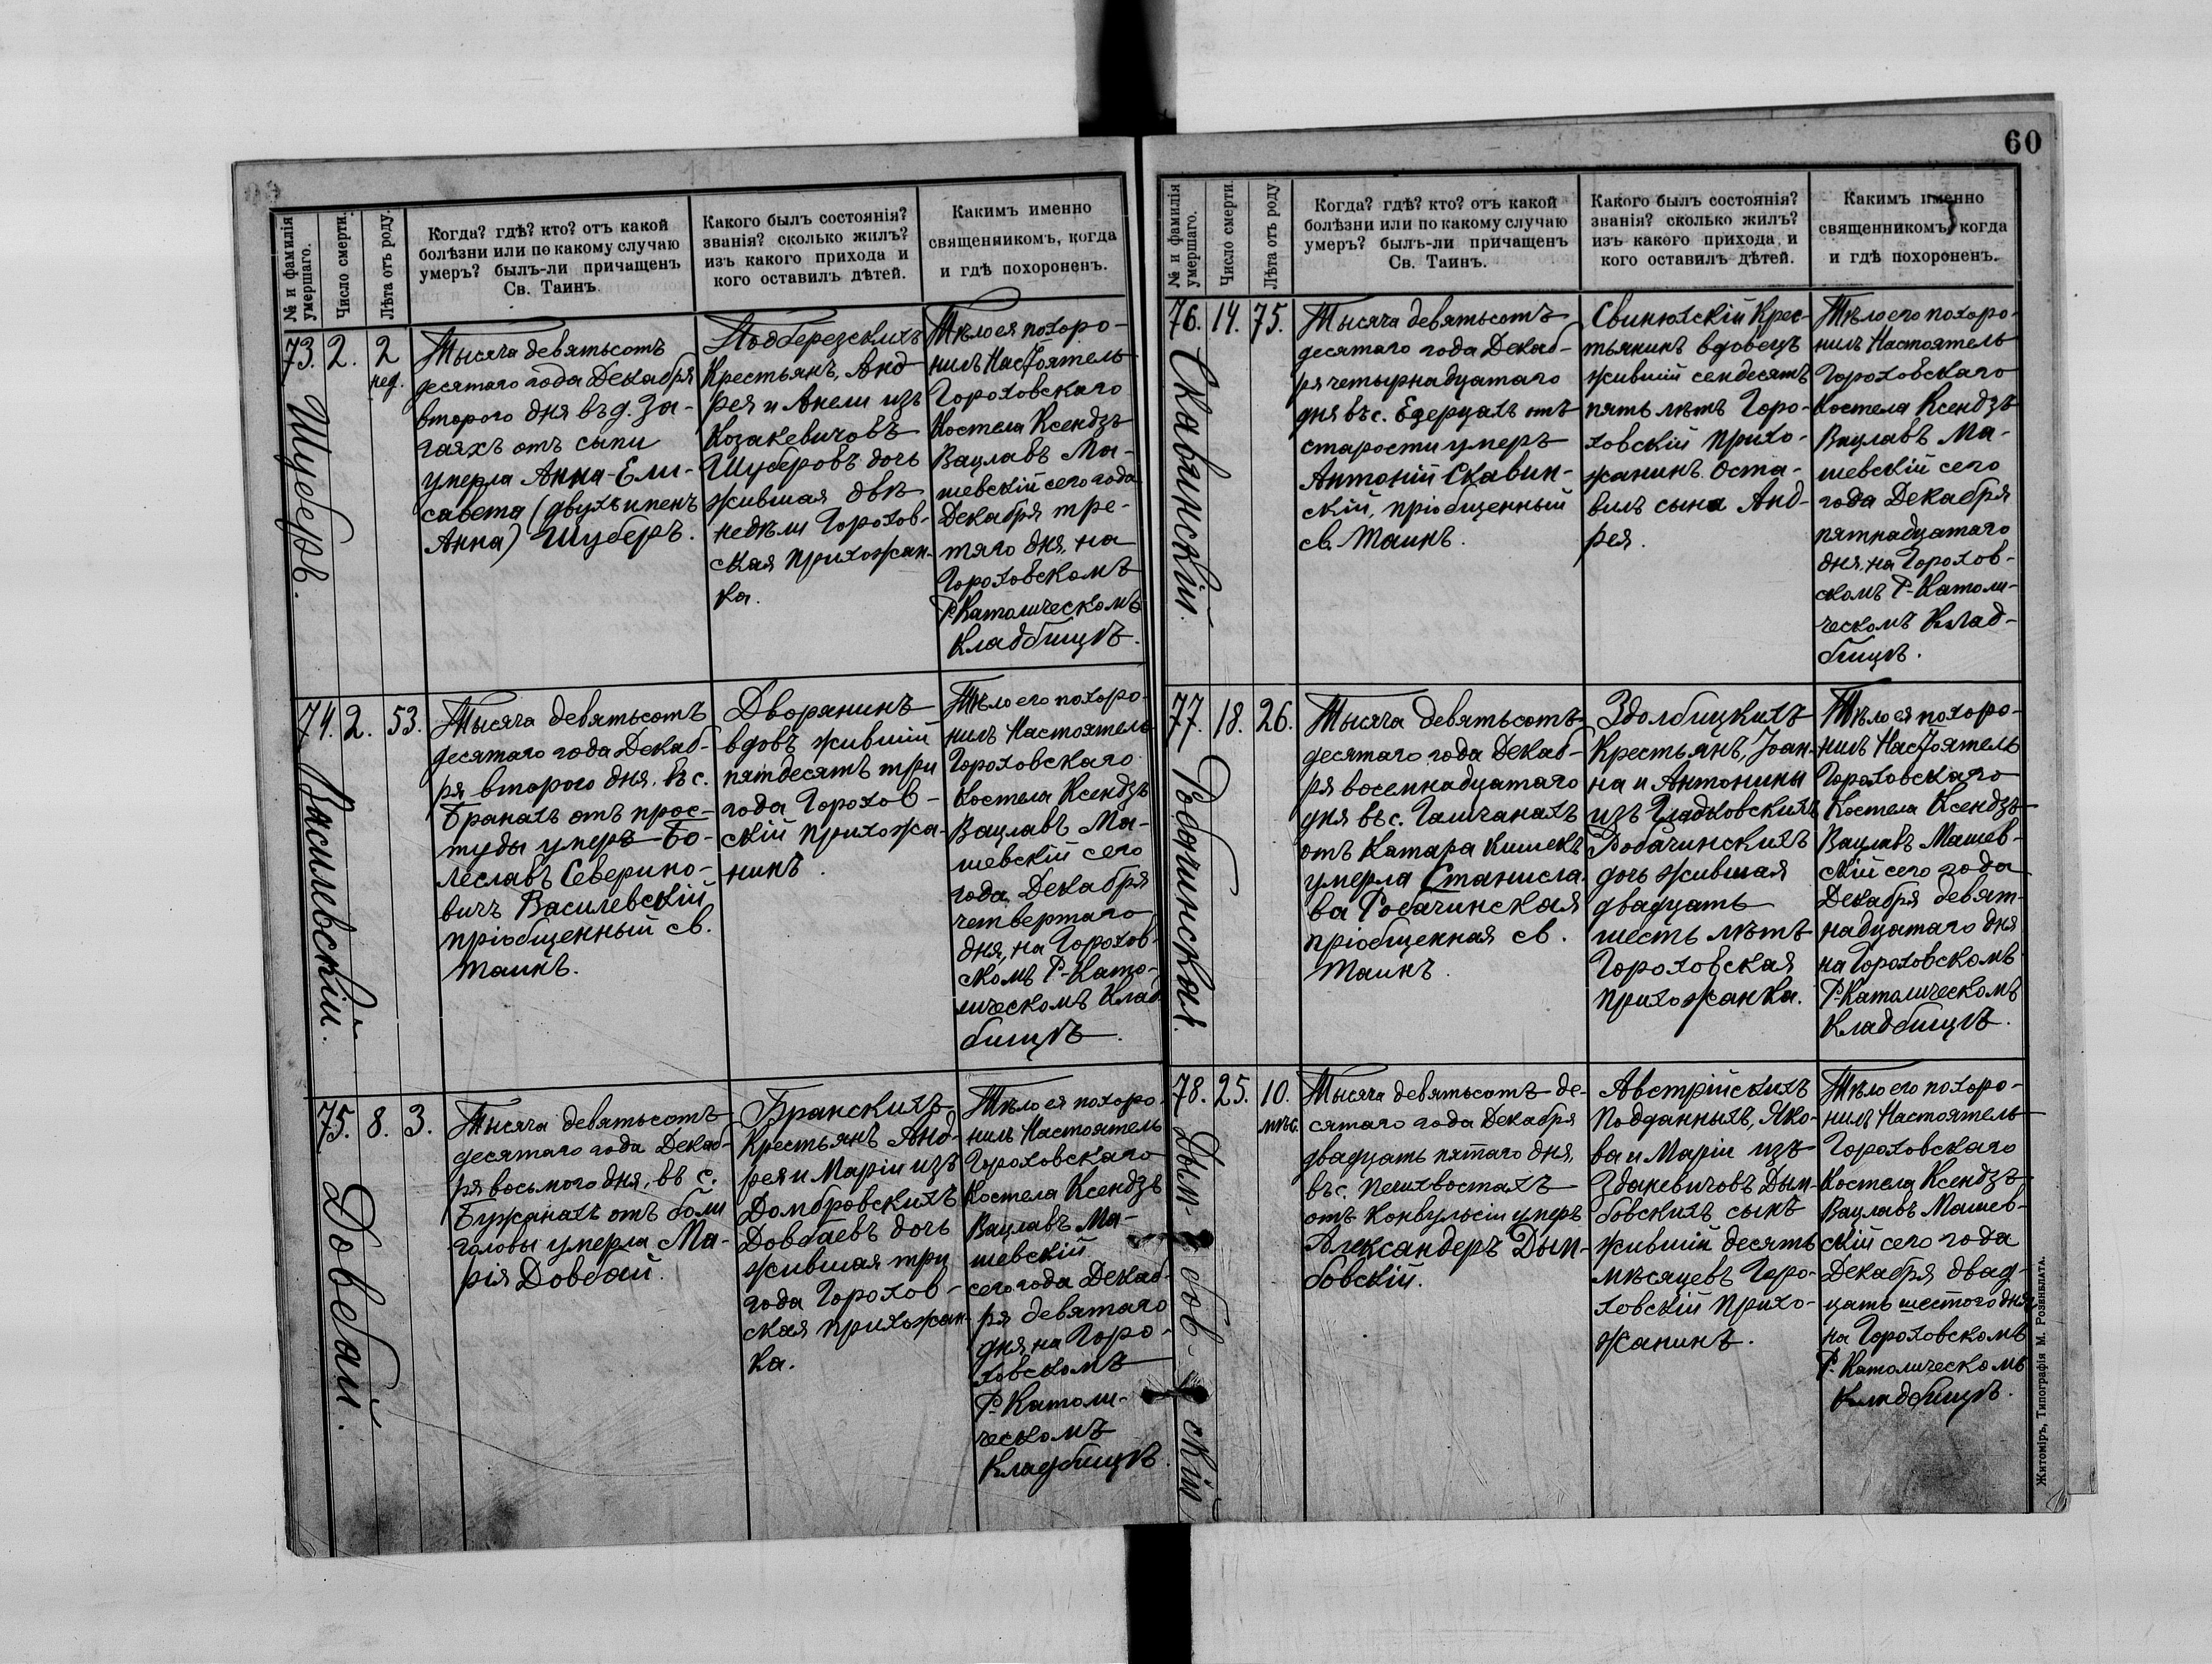 60
№ и фамилія
умершаго.
Число смерти.
Лѣта отъ роду.
Когда? гдѣ? кто? отъ какой
болѣзни или по какому случаю
умеръ? былъ-ли причащенъ
Св. Таинъ.
Какого былъ состоянія?
званія? сколько жилъ?
изъ какого прихода и
кого оставилъ дѣтей.
Каким именно
священникомъ, когда
и гдѣ похороненъ.
73.
Шуберъ.
2.
2
нед.
Тысяча девятьсотъ
десятаго года Декабря
второго дня въ д. За-
гаяхъ отъ сыпи
умерла Анна-Ели-
савета (двухъ именъ
Анна) Шуберъ.
Подберезскихъ
Крестьянъ, Анд
рея и Анели изъ
Козакевичовъ
Шуберовъ дочь
жившая двѣ
недѣли Горохов-
ская прихожан-
ка.
Тѣло ея похоро-
нилъ Настоятель
Гороховскаго
Костела Ксендзъ
Вацлавъ Ма-
шевскій сего года
Декабря тре-
тяго дня, на
Гороховскомъ
Р-Католическомъ
Кладбищѣ.
74.
Василевскій.
2.
53.
Тысяча девятьсотъ
десятаго года Декаб-
ря второго дня, въ с.
Бранахъ отъ прос-
туды умеръ Бо-
леславъ Северино-
вичъ Василевскій
пріобщенный св.
таинъ.
Дворянинъ
вдовъ жившій
пятдесятъ три
года Горохов-
скій прихожа-
нинъ.
Тѣло его похоро-
нилъ Настоятель
Гороховскаго
Костела Ксендзъ
Вацлавъ Ма-
шевскій сего
года Декабря
четвертаго
дня, на Горохов-
скомъ Р-Като-
лическомъ Клад
бищѣ.
75.
Довбай.
8.
3.
Тысяча девятьсотъ
десятаго года Декаб-
ря восьмого дня, въ с.
Бужанахъ отъ боли
головы умерла Ма-
рія Довбай.
Бранскихъ
Крестьянъ Анд-
рея и Маріи изъ
Домбровскихъ
Довбаевъ дочь
жившая три
года Горохов-
ская прихожан-
ка.
Тѣло ея похоро-
нилъ Настоятель
Гороховскаго
Костела Ксендзъ
Вацлавъ Ма-
шевскій
сего года Декаб-
ря девятаго
дня на Горо-
ховскомъ
Р-Католи-
ческомъ
Кладбищѣ.
№ и фамилія
умершаго.
Число смерти.
Лѣта отъ роду.
Когда? гдѣ? кто? отъ какой
болѣзни или по какому случаю
умеръ? былъ-ли причащенъ
Св. Таинъ.
Какого былъ состоянія?
званія? сколько жилъ?
изъ какого прихода и
кого оставилъ дѣтей.
Каким именно
священникомъ, когда
и гдѣ похороненъ.
76.
Скавинскій.
14.
75.
Тысяча девятьсотъ
десятаго года Декаб-
ря четырнадцатаго
дня въ с. Езерцахъ отъ
старости умеръ
Антоній Скавин-
скій, пріобщенный
св. Таинъ.
Свинюхскій Крес-
тьянинъ вдовецъ
жившій семдесятъ
пять лѣтъ Горо-
ховскій прихо-
жанинъ. Оста-
вилъ сына Анд-
рея.
Тѣло его похоро-
нилъ Настоятель
Гороховскаго
Костела Ксендзъ
Вацлавъ Ма-
шевскій сего
года Декабря
пятнадцатаго
дня, на Горохов-
скомъ Р-Католи-
ческомъ Клад-
бищѣ.
77.
Робачинская.
18.
26.
Тысяча девятьсотъ
десятаго года Декаб-
ря восемнадцатаго
дня въ с. Галичанахъ
отъ Катара кишекъ
умерла Станисла-
ва Робачинская
пріобщенная св.
Таинъ.
Здолбицкихъ
Крестьянъ, Іоан-
на и Антонины
изъ Гладковскихъ
Робачинскихъ
дочь жившая
двадцать
шесть лѣтъ
Гороховская
прихожанка.
Тѣло ея похоро-
нилъ Настоятель
Гороховскаго
Костела Ксендзъ
Вацлавъ Машев-
скій сего года
Декабря девят-
надцатаго дня
на Гороховскомъ
Р-Католическомъ
Кладбищѣ.
78.
Дым-бов-скій
25.
10.
мѣс.
Тысяча девятьсотъ де-
сятаго года Декабря
двадцать пятаго дня,
въ с. Пелихвостахъ
отъ Конвульсіи умеръ
Александеръ Дым-
бовскій.
Австрійскихъ
Подданныхъ, Яко-
ва и Маріи изъ
Зданевичовъ Дым-
бовскихъ сынъ
жившій десять
мѣсяцевъ Горо-
ховскій прихо-
жанинъ.
Тѣло его похоро-
нилъ Настоятель
Гороховскаго
Костела Ксендзъ
Вацлавъ Машев-
скій сего года
Декабря двад-
цать шестого дня
на Гороховскомъ
Р-Католическомъ
Кладбищѣ.
Житоміръ, Типографія М. Розенблата.